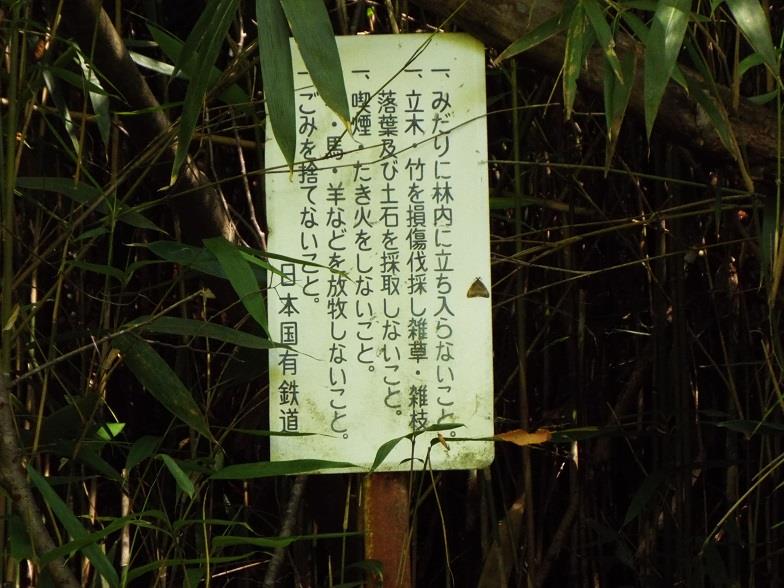 一、みだりに林内に立ち入らないこと。
一、立木・竹を損傷伐採し雑草・雑枝
落葉及び土石を採取しないこと。
一、喫煙・たき火をしないこと。
・馬・羊などを放牧しないこと。
一、ごみを捨てないこと。
日本国有鉄道